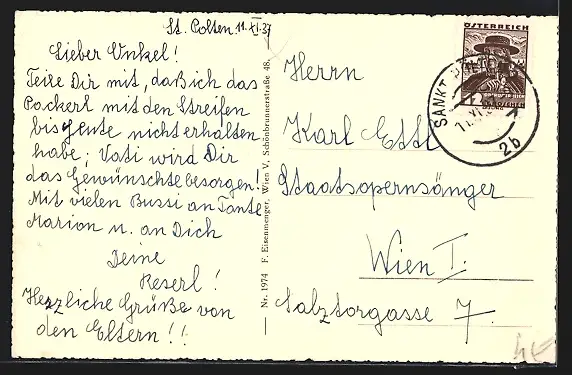 St. Pölten 11.XI.37
Lieber Onkel!
Teile Dir mit, daß ich das
Packerl mit den Streifen
bis heute nicht erhalten
habe; Vati wird Dir
das Gewünschte besorgen!
Mit vielen Bussi an Tante
Marion u. an Dich
Deine
Reserl!
Herzliche Grüße von
den Eltern!!
Nr. 1974 F. Eisenmenger, Wien V, Schönbrunnerstraße 48.
ÖSTERREICH
12 GROSCHEN
SANKT PÖLTEN
11.XI.
2b
Herrn
Karl Ettl
Staatsopernsänger
Wien I.
Salztorgasse 7.